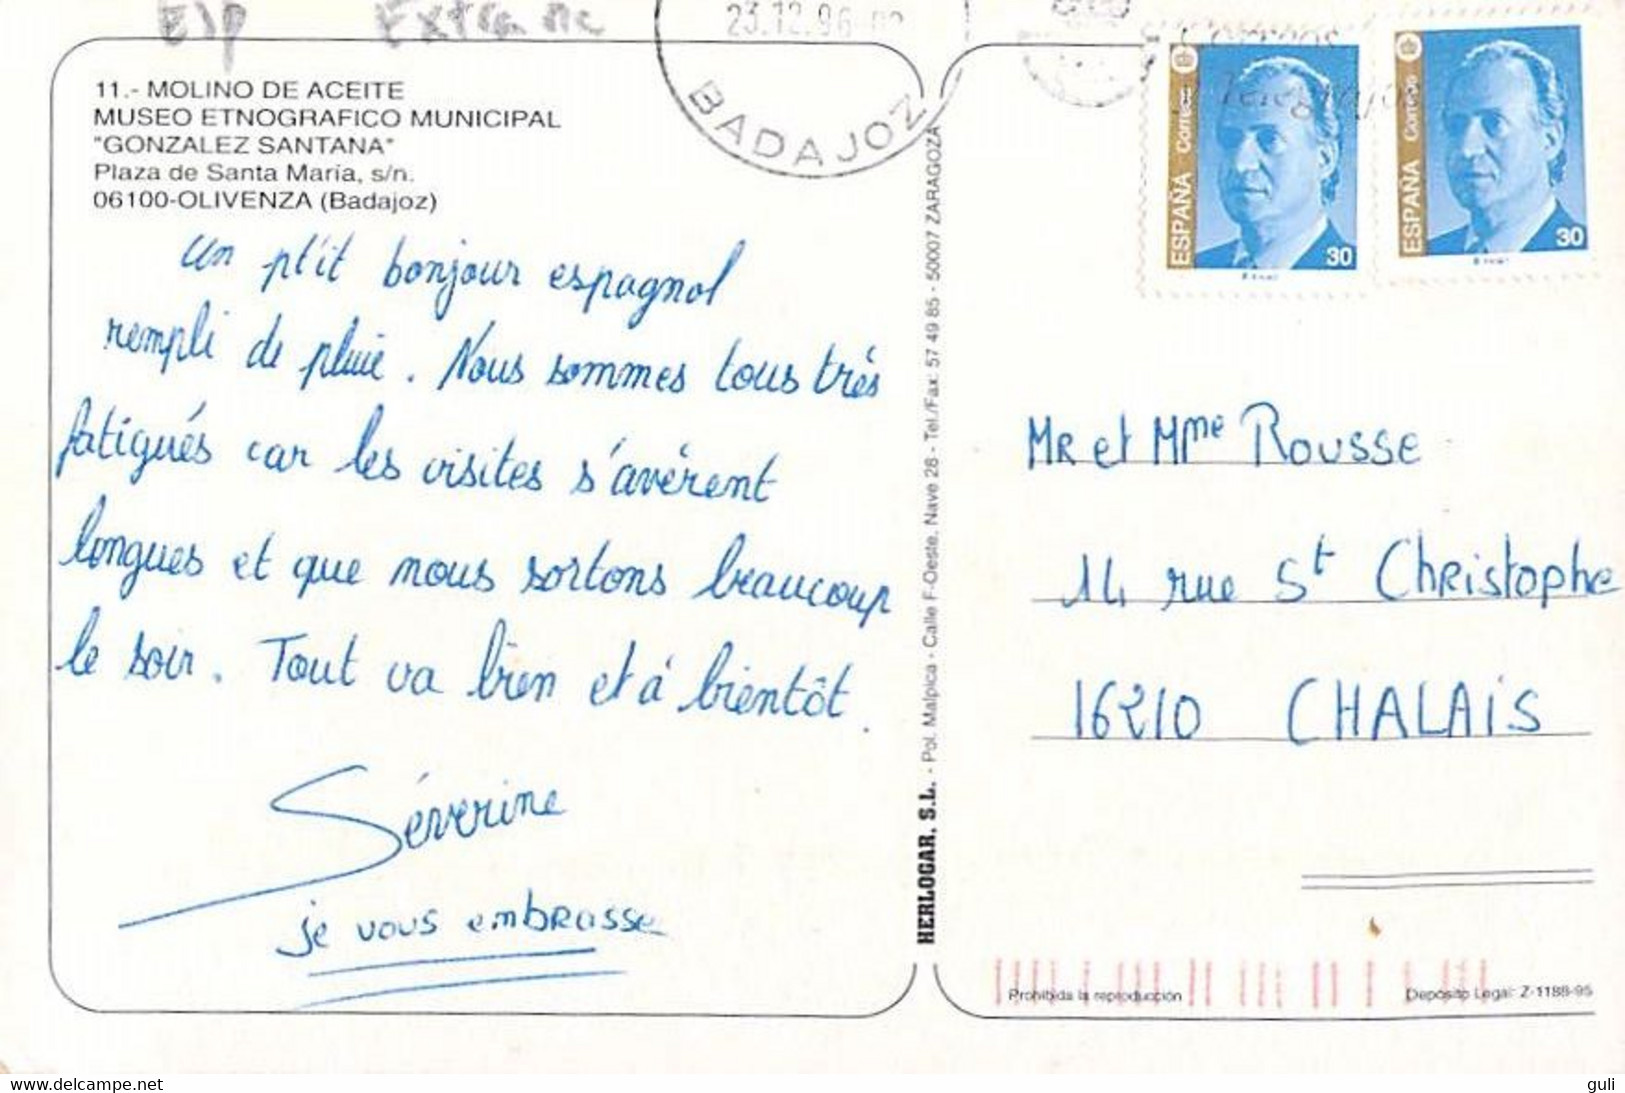 Esp Extremadure
23.12.96
BADAJOZ
Correos
Telégrafos
11.- MOLINO DE ACEITE
MUSEO ETNOGRAFICO MUNICIPAL
"GONZALEZ SANTANA"
Plaza de Santa María, s/n.
06100-OLIVENZA (Badajoz)
Un pt'it bonjour espagnol
rempli de pluie. Nous sommes tous trés
fatigués car les visites s'avérent
longues et que nous sortons beaucoup
le soir. Tout va bien et à bientôt.
Séverine
je vous embrasse
HERLOGAR, S.L. - Pol. Malpica - Calle F-Oeste. Nave 28 - Tel./Fax: 57 49 85 - 50007 ZARAGOZA
ESPAÑA Correos 30
ESPAÑA Correos 30
MR et Mme ROUSSE
14 rue St CHRistophe
16210 CHALAiS
Prohibida la reproducción
Depósito Legal: Z-1188-95
guli
www.delcampe.net